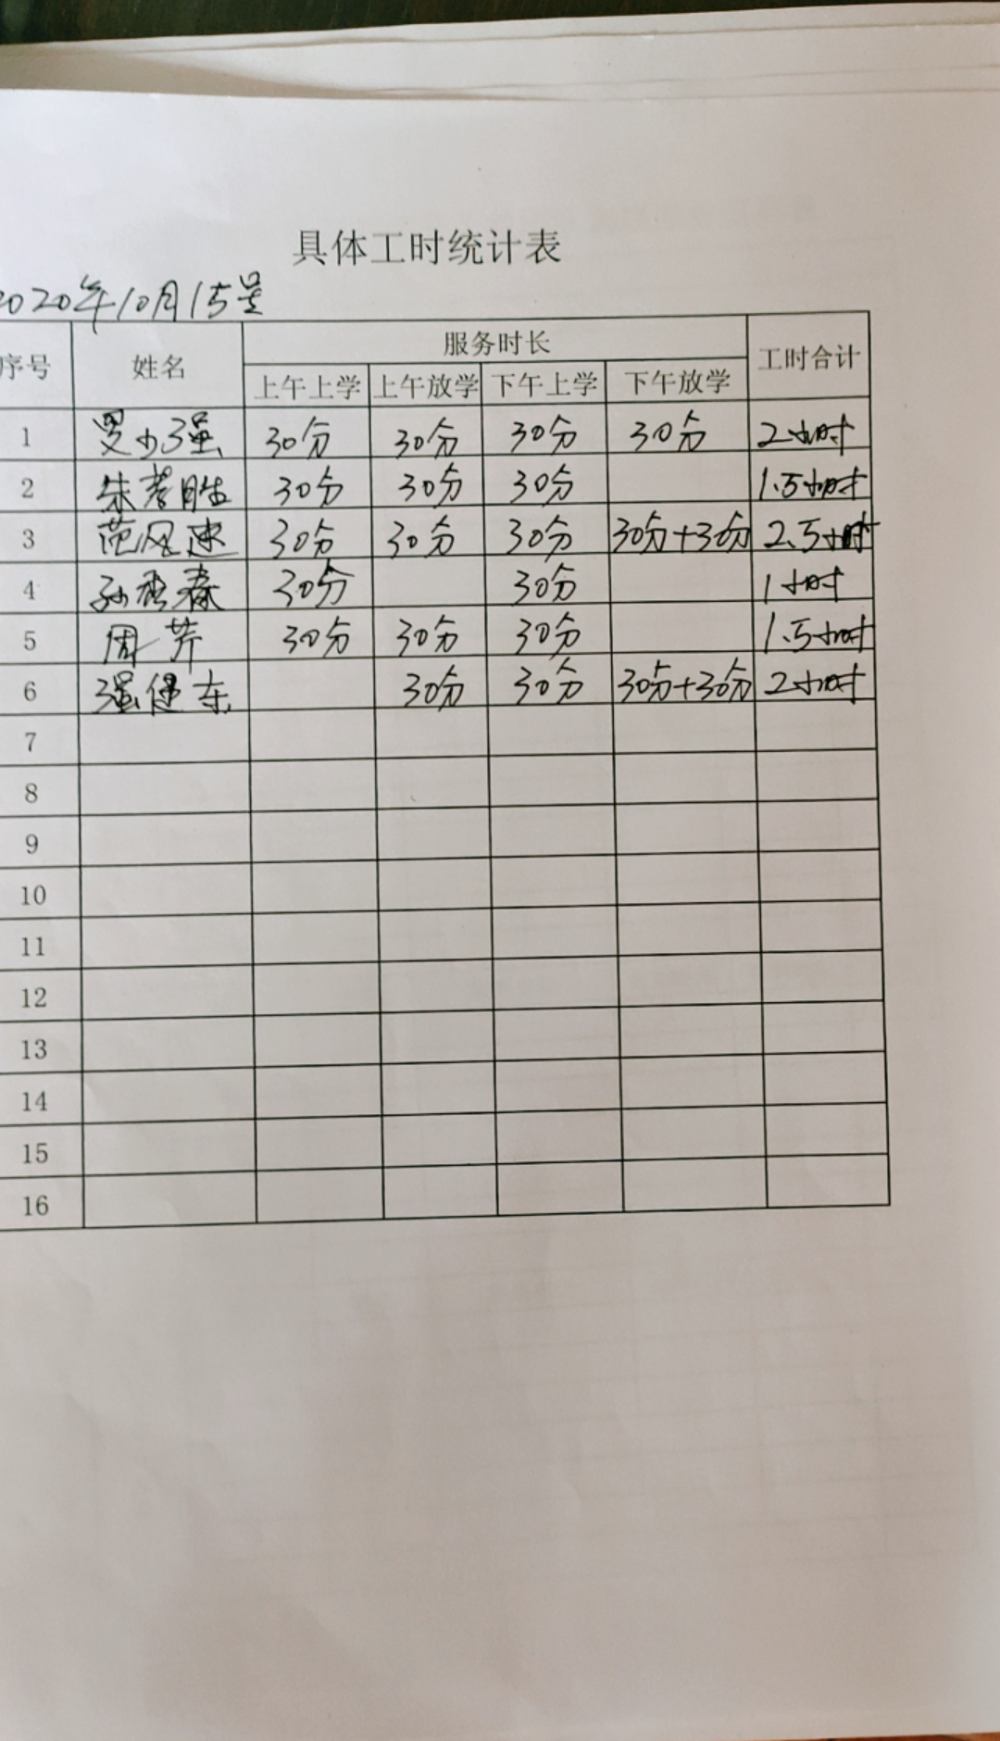 具体工时统计表
2020年10月15号
序号 姓名 服务时长 工时合计
上午上学 上午放学 下午上学 下午放学
1 罗少强 30分 30分 30分 30分 2小时
2 朱孝胜 30分 30分 30分 1.5小时
3 范风速 30分 30分 30分 30分+30分 2.5小时
4 孙秀春 30分 30分 1小时
5 周芹 30分 30分 30分 1.5小时
6 强健东 30分 30分 30分+30分 2小时
7
8
9
10
11
12
13
14
15
16